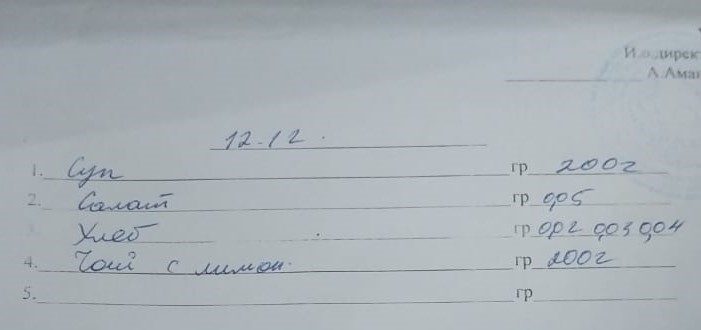 И.о.дирек
А.Аман
12.12.
1. Суп гр 200г
2. Салат гр 0,05
3. Хлеб гр 0,02 0,03 0,04
4. Чай с лимон. гр 200г
5. гр